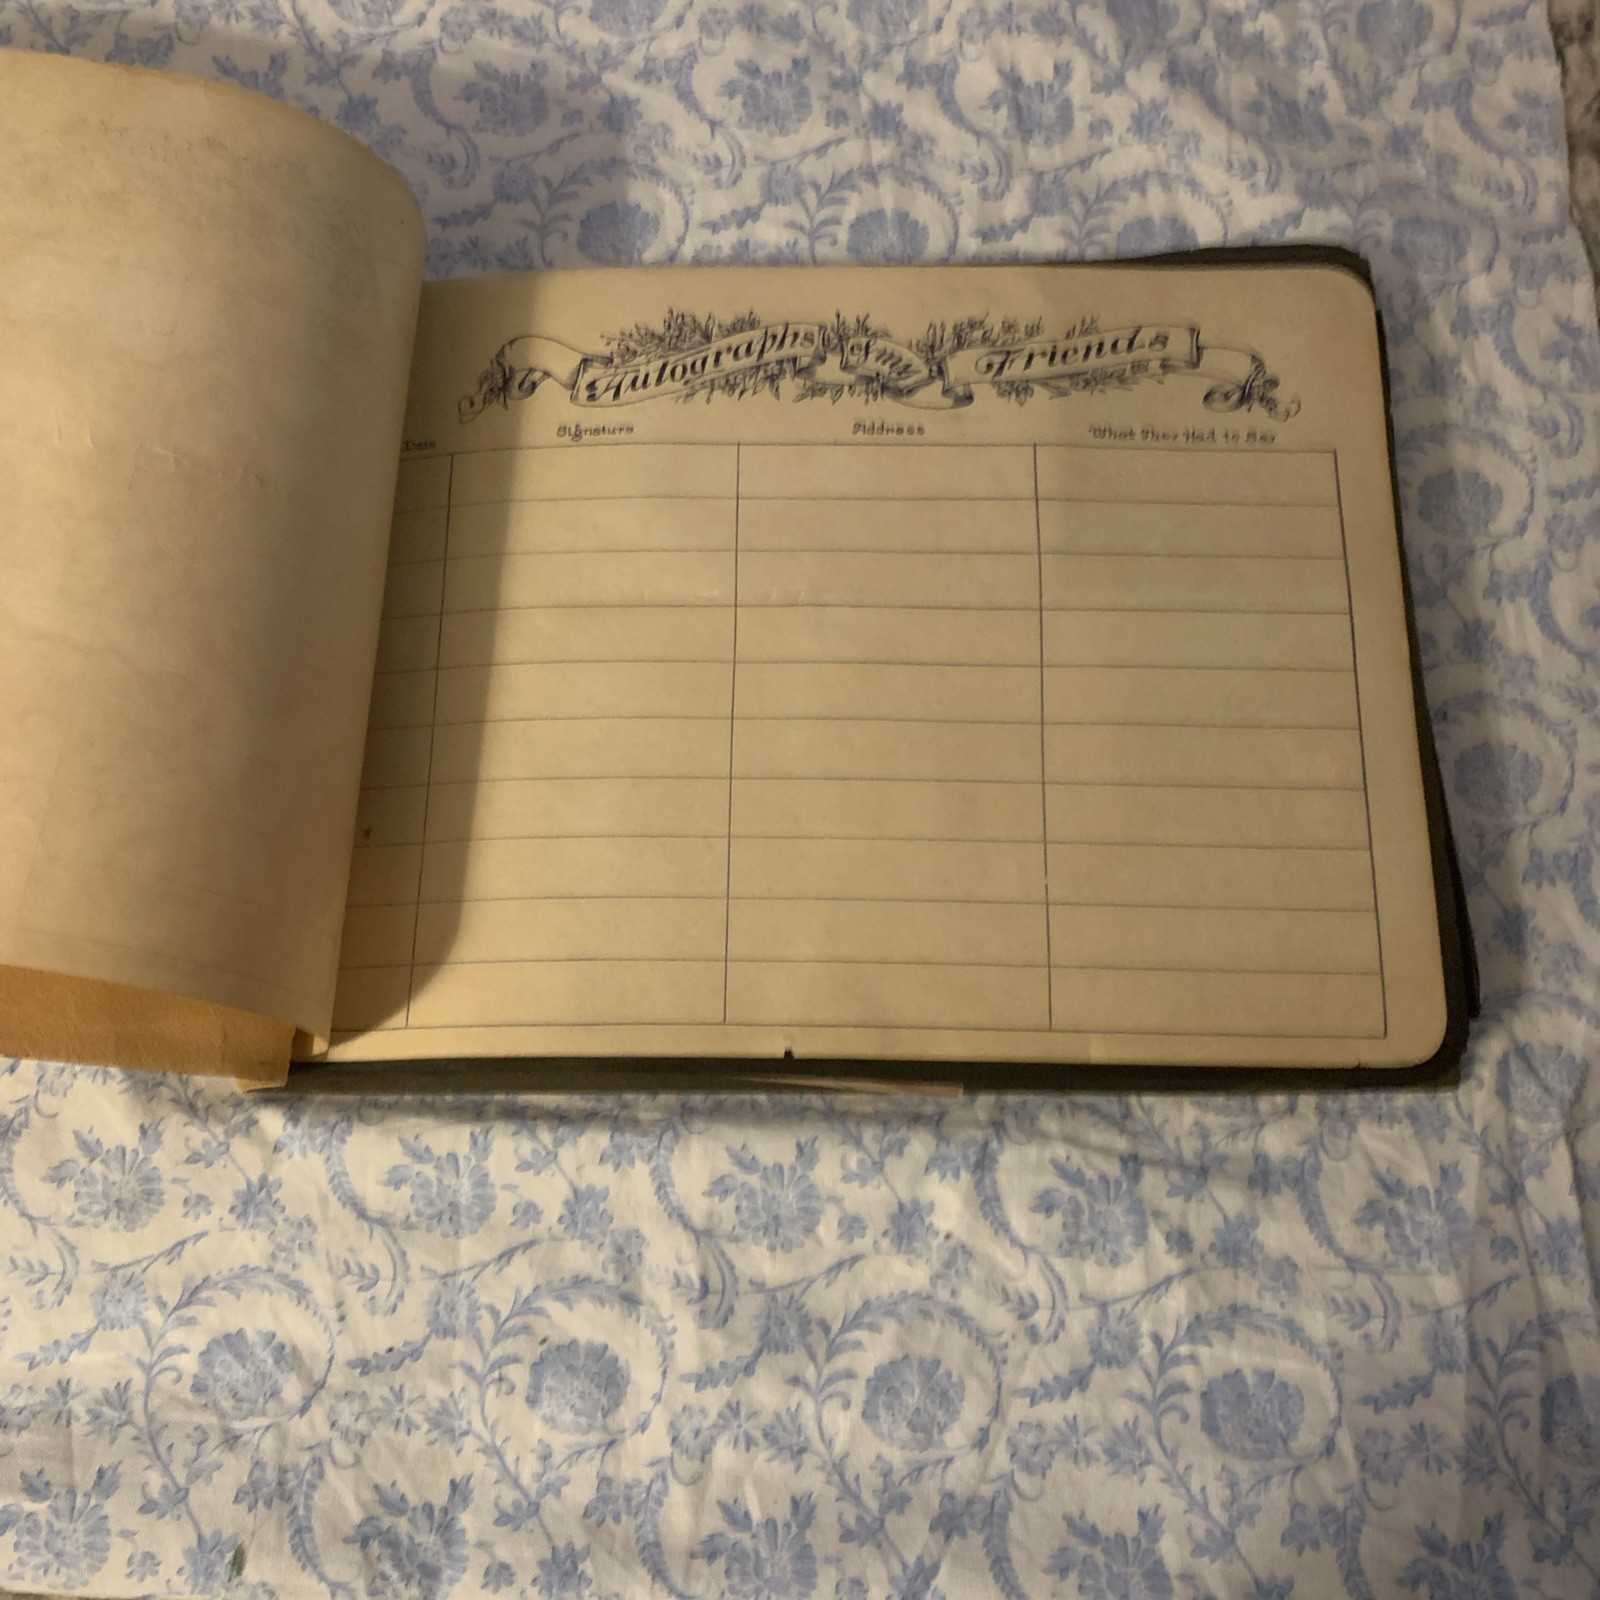 Autographs of my Friends
Date Signature Address What They Had to Say